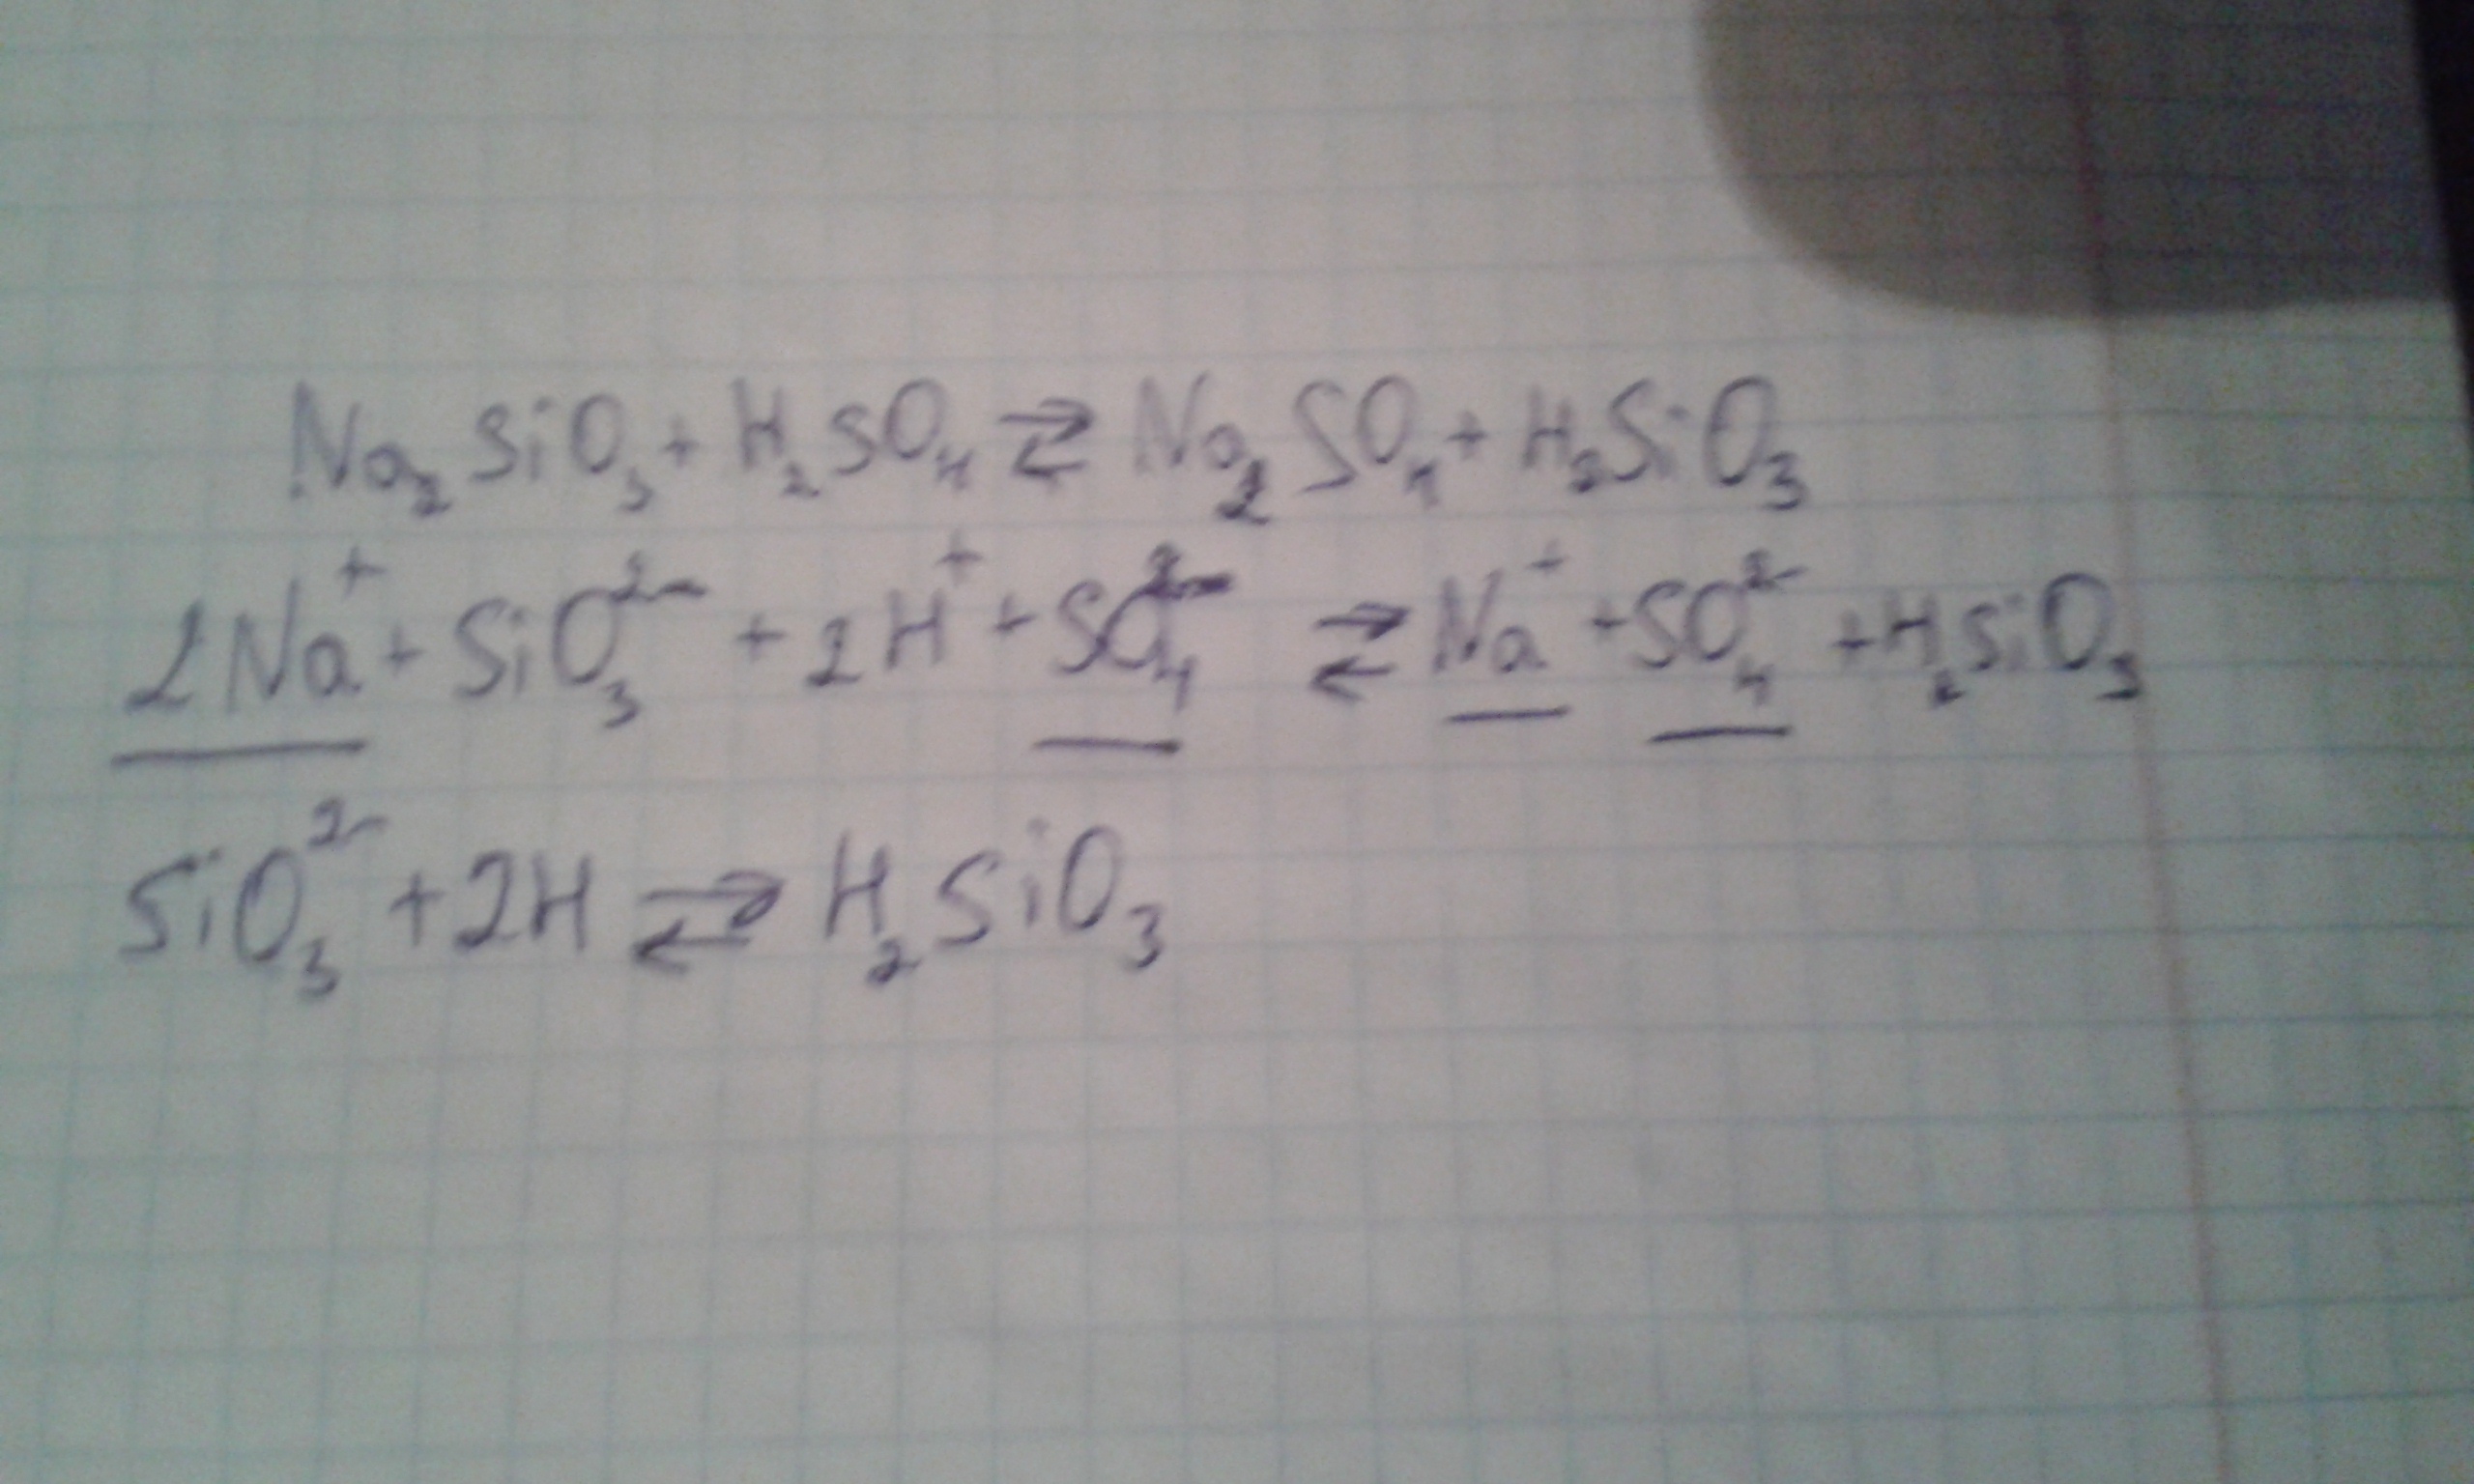 Na₂SiO₃ + H₂SO₄ ⇄ Na₂SO₄ + H₂SiO₃
2Na⁺ + SiO₃²⁻ + 2H⁺ + SO₄²⁻ ⇄ Na⁺ + SO₄²⁻ + H₂SiO₃
SiO₃²⁻ + 2H ⇄ H₂SiO₃